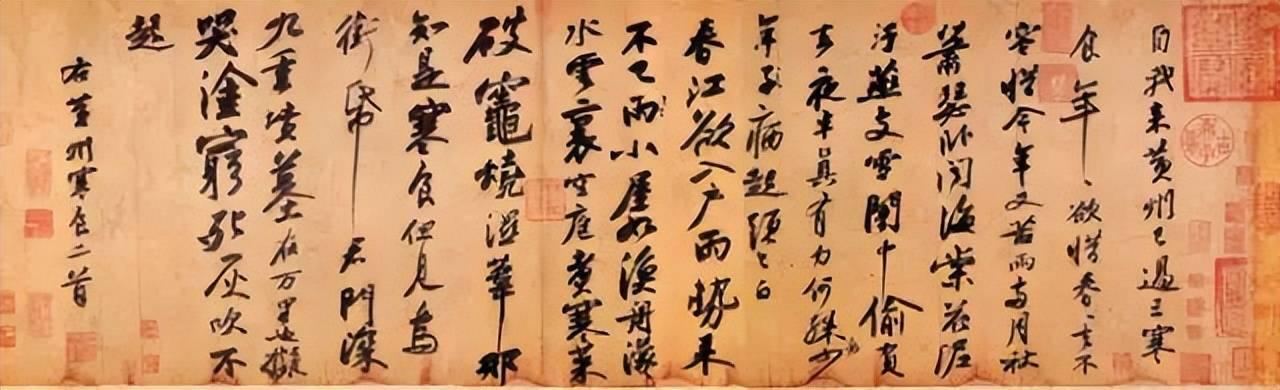 自我来黄州已過三寒
食年〻欲惜春〻去不
容惜今年又苦雨兩月秋
蕭瑟卧聞海棠花泥
汙燕支雪闇中偷負
去夜半真有力何殊少
年子病起須已白
春江欲入户雨勢来
不已雨小屋如漁舟濛
水雲裏空庖煮寒菜
破竈燒濕葦那
知是寒食但見烏
銜帋 君門深
九重墳墓在万里也擬
哭塗窮死灰吹不
起
右黄州寒食二首